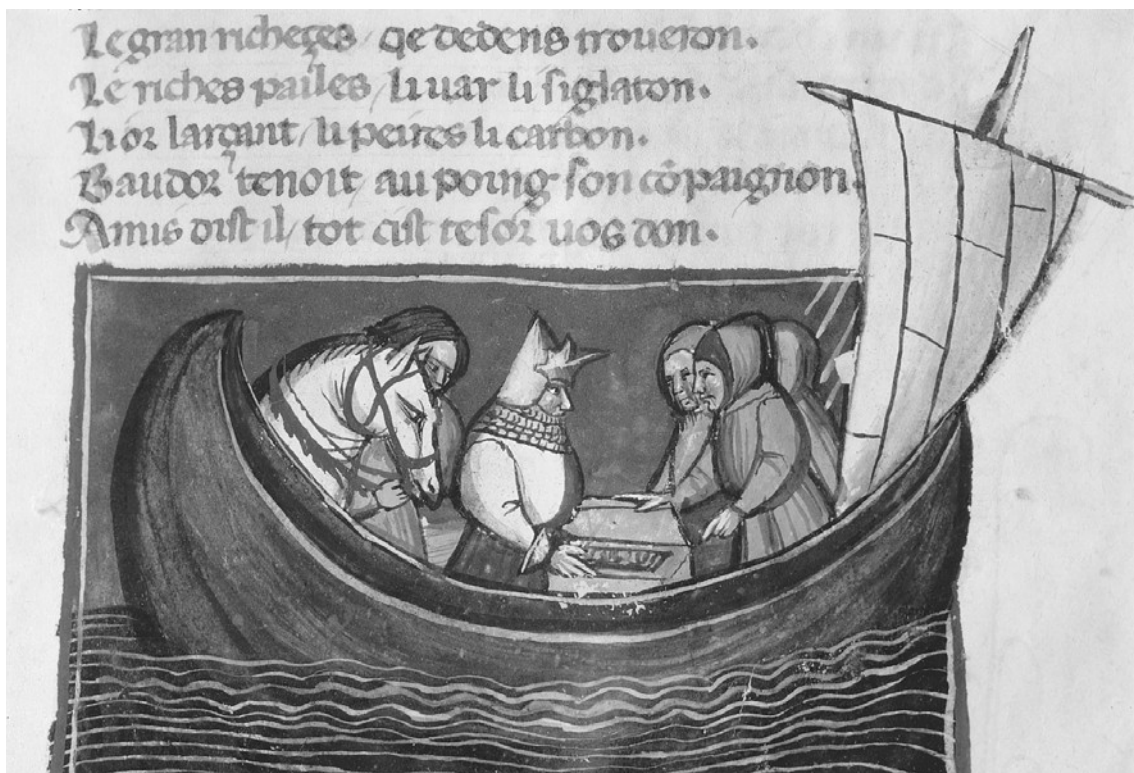 Le gran richeçes qe dedens troueron.
Le riches pailes / li uar li siglaton.
Li or larçant / li peires li carbon.
Baudor tenoit au poing son cōpaignon.
Amis dist il / tot cist tesor uos don.